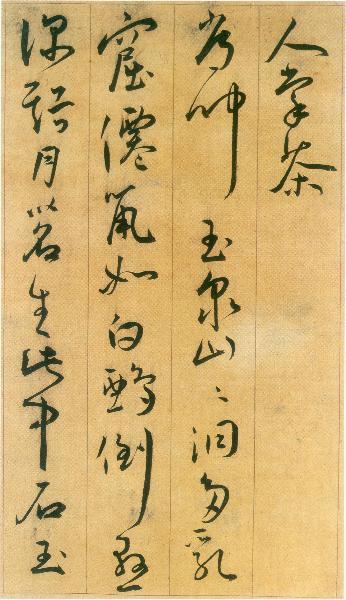 人掌茶
常聞玉泉山〻洞多乳
窟僊鼠如白鴉倒懸
深谿月茗生此中石玉